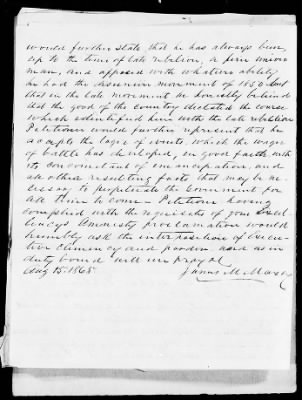 would further state that he has always been,
up to the time of late rebelion, a firm union
man, and opposed with whatever ability
he had the movement of 1850 but
that in the late movement he honestly believed
that the good of the country dictated the course
which identified him with the late rebelion
Petitioner would further represent that he
accepts the logic of events, which the wager
of battle has developed, in good faith with
its concomitant of emancipation, and
all other resulting facts that may be ne=
cessary to perpetuate the Government for
all time to come – Petitioner having
complied with the requisites of your Excel
lencys Amnesty proclamation would
humbly ask the interposition of Execu=
tive clemency and pardon and as in
duty bound will ever pray &c
Aug 15. 1865 James M.